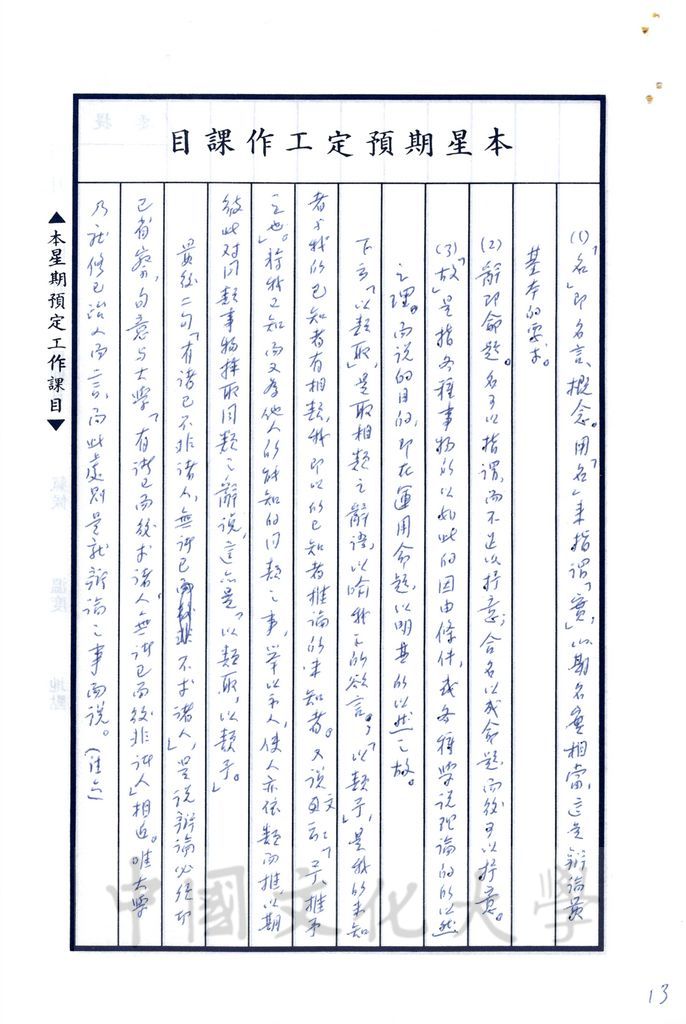 本星期預定工作課目
(1)「名」即名言、概念。用「名」來指謂「實」,以期名實相當,這是辯論最
基本的要求。
(2) 辭即命題。名可以指謂,而不足以抒意;合名以成命題,而後可以抒意。
(3)「故」是指各種事物所以如此的因由條件,或各種學說理論的所以然
之理。而說的目的,即在運用命題,以明其所以然之故。
下言「以類取」,是取相類之辭語,以喻我之所欲言。「以類予」,是我所未知
者與我所已知者有相類,我即以所已知者推論所未知者。又說文云:「予、推予
也。」
彼此對同類事物擇取同類之辭說,這亦是「以類取,以類予。」
最後二句「有諸己不非諸人,無諸己不求諸人」,是說辯論必須
已省察,句意與大學「有諸己而後求諸人,無諸己而後非諸人」相近。唯大學
乃就修己治人而言,而此處則是就辯論之事而說。
▲本星期預定工作課目▼
中國文化大學
13